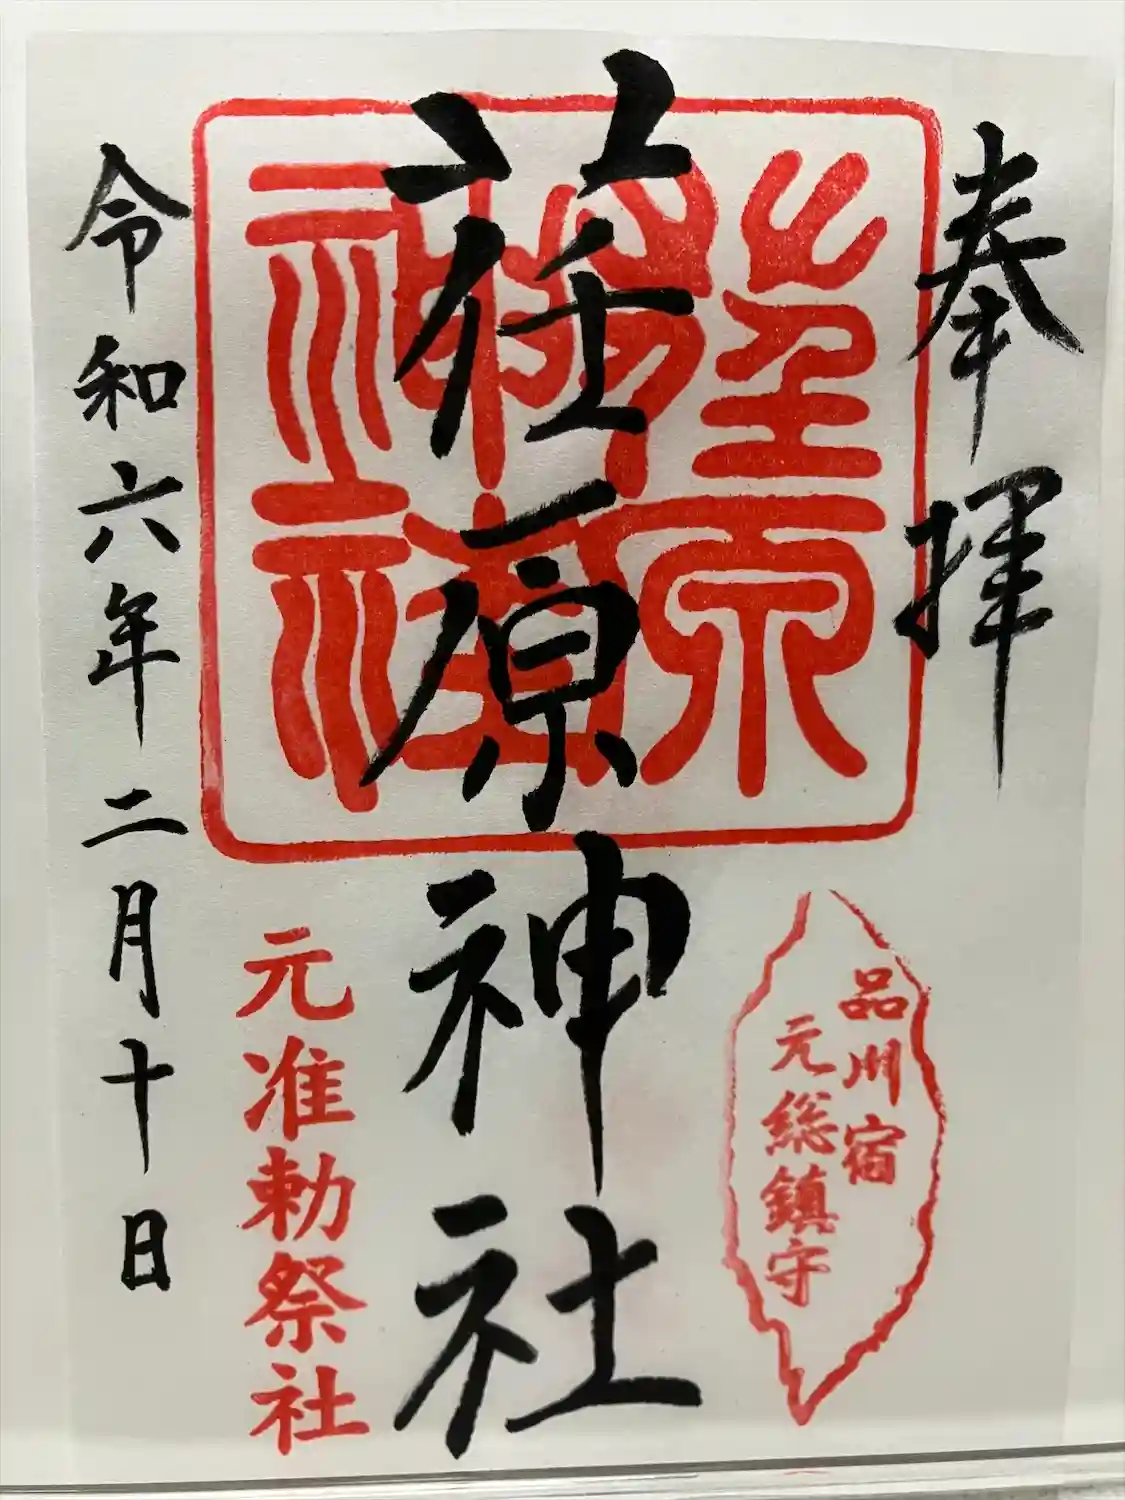 奉拝
品川宿
元総鎮守
荏原神社
元准勅祭社
令和六年二月十日